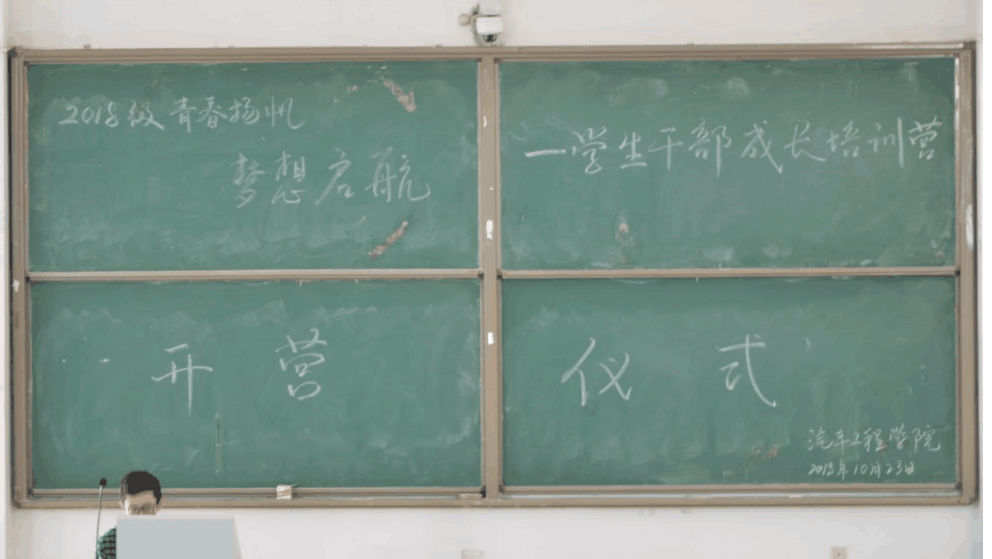 2018级 青春扬帆
梦想启航
一学生干部成长培训营
开营
仪式
汽车工程学院
2018年10月23日